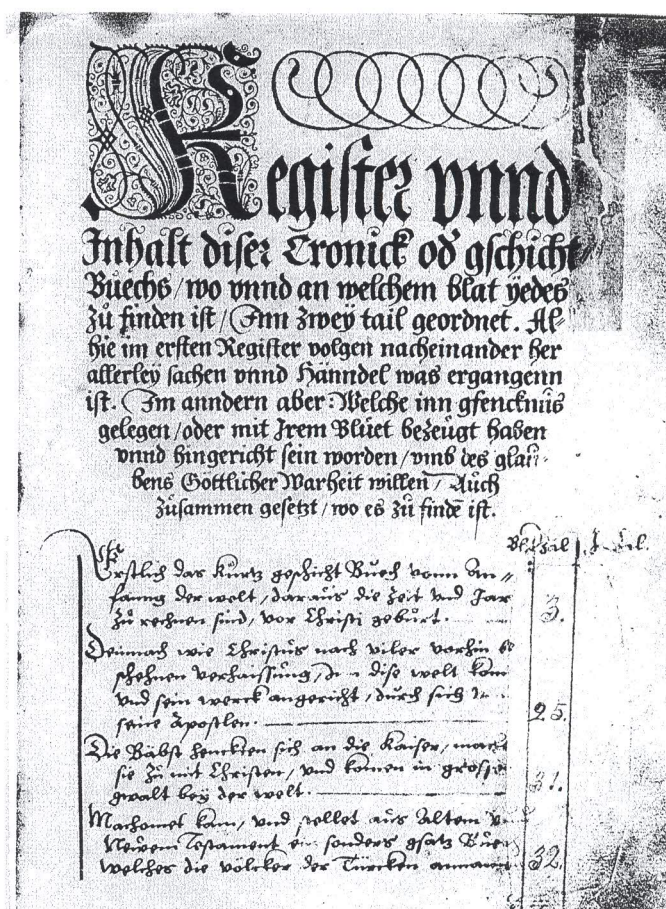 Register vnnd
Inhalt diser Cronick od gschicht
Buechs / wo vnnd an welchem blat yedes
zu finden ist / Inn zwey tail geordnet. Al-
hie im ersten Register volgen nacheinander her
allerley sachen vnnd Hänndel was ergangenn
ist. Im anndern aber: Welche inn gfencknus
gelegen / oder mit Irem Bluet bezeugt haben
vnnd hingericht sein worden / vmb des glau-
bens Göttlicher Warheit willen / Auch
zusammen gesetzt / wo es zu finde ist.
Erstlich das kurtz geschicht Buech vonn An-
fanng der welt, daraus die Zeit vnd Jar
zu rechnen sind, vor Christi geburt. 3.
Demnach wie Christus nach viler vorhin
schehnen verhaissung, dise welt kom
vnd sein werck angericht, durch sich
seine Apostlen. 25.
Die Bäbst henckten sich an die Kaiser,
sie zu mit Christen, vnd komen in grosse
gwalt bey der welt. 31.
Machomet kam, vnd stellet aus Altem
Newem Testament ein sonders gsatz
welches die völcker der Türcken 32.